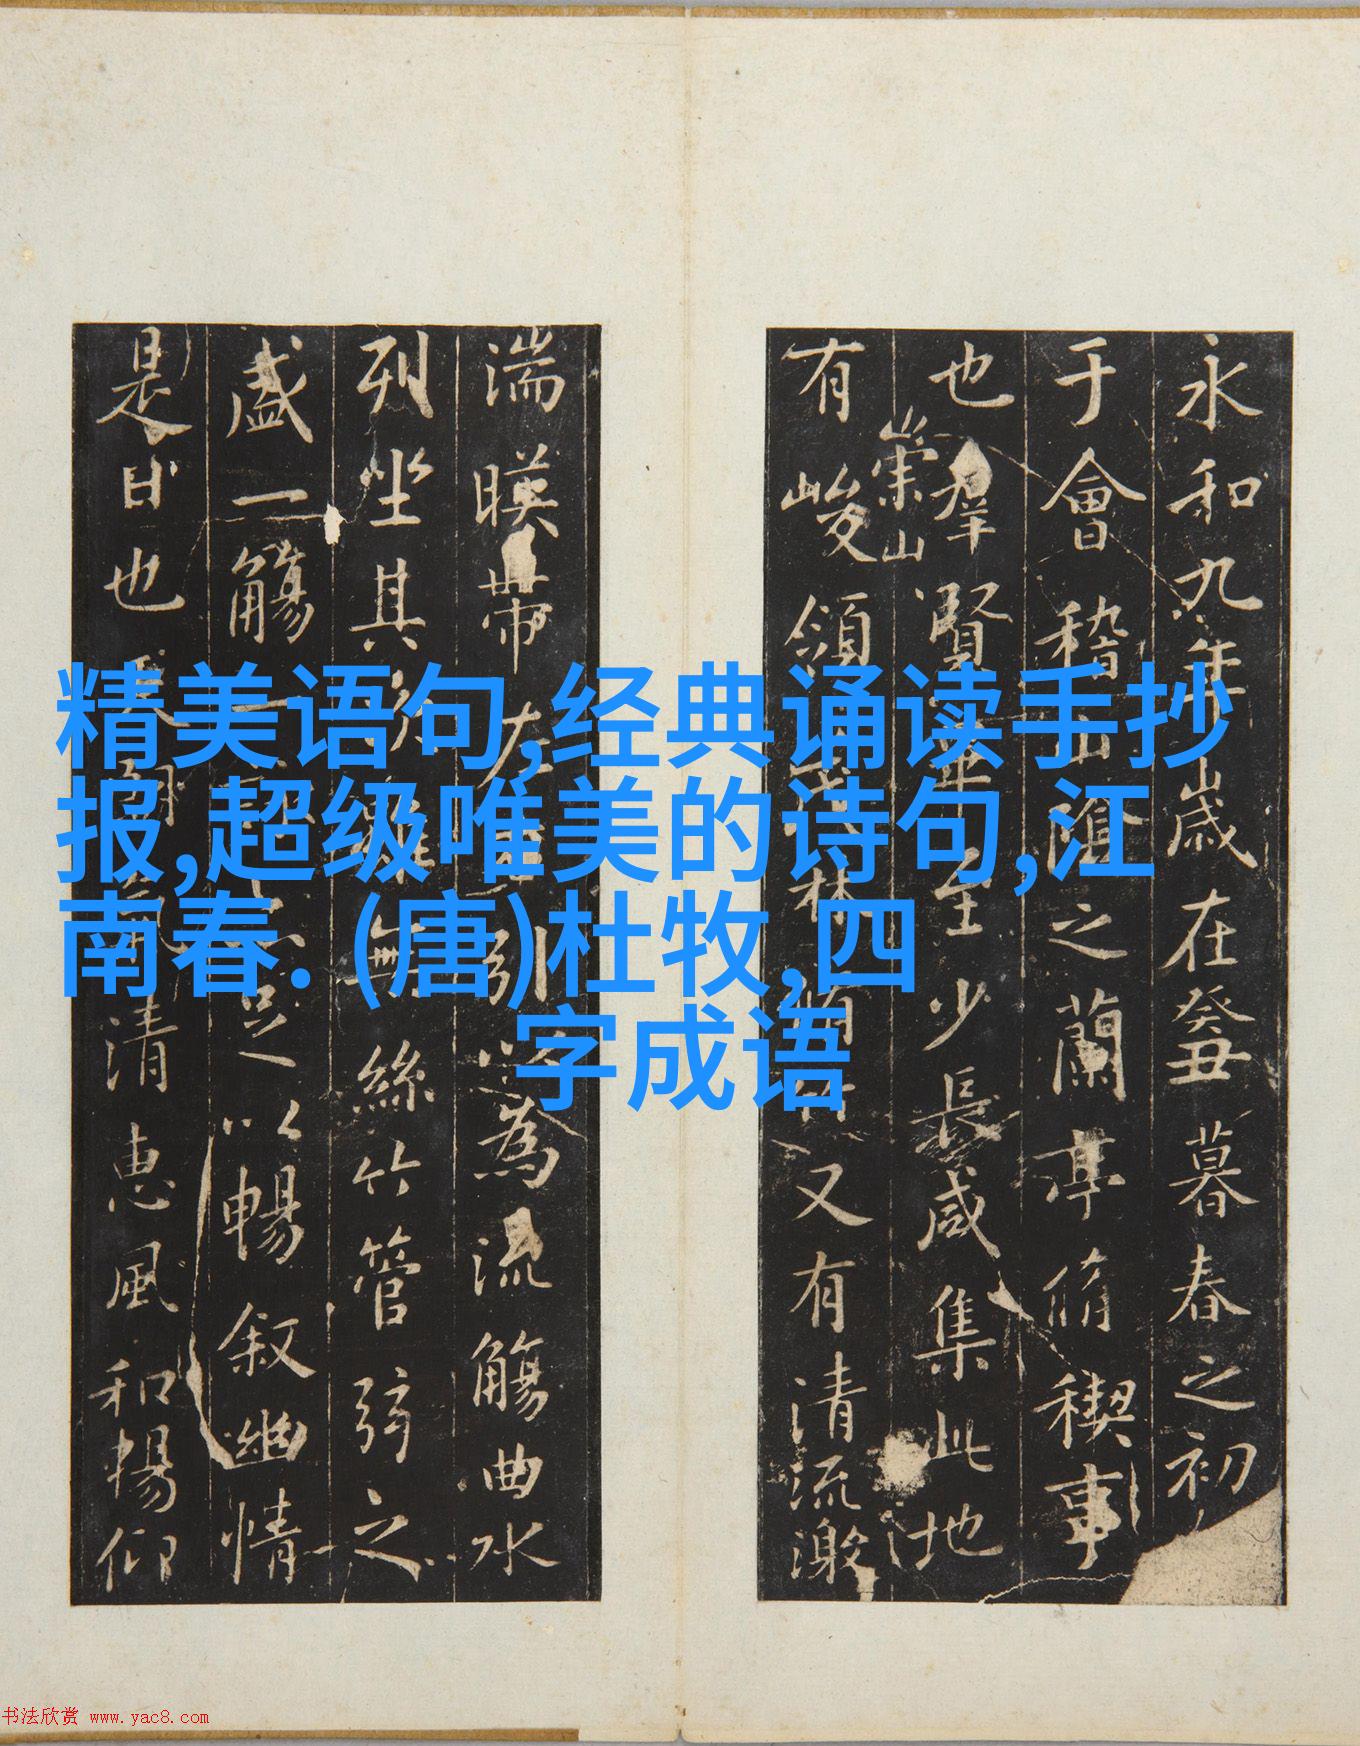 永和九年歲在癸丑暮春之初
于會稽山隂之蘭亭脩禊事
也羣賢畢至少長咸集此地
崇山
有峻領茂林脩竹又有清流激
湍暎帶左右引以為流觴曲水
列坐其次雖無絲竹管弦之
盛一觴一詠亦足以暢叙幽情
是日也天朗氣清惠風和暢仰
精美语句,经典诵读手抄
报,超级唯美的诗句,江
南春. (唐)杜牧,四
字成语
书法欣赏 www.yac8.com